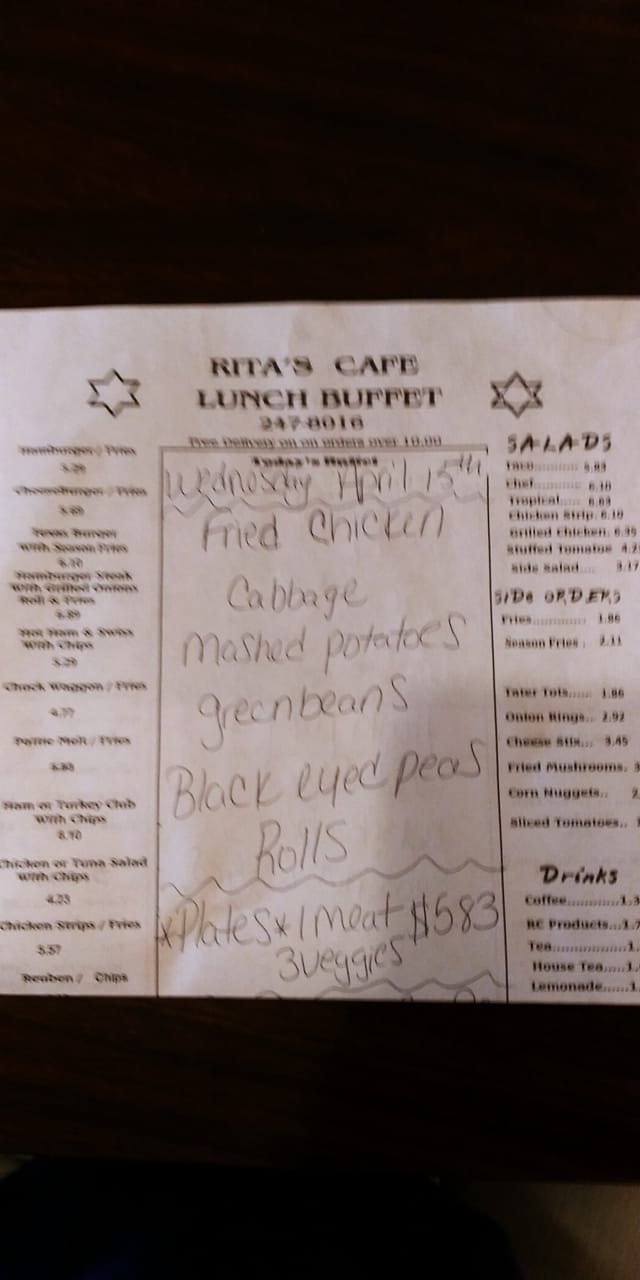 RITA'S CAFE
LUNCH BUFFET
247-8016
Free Delivery on on orders over 10.00
Hamburger / Fries
5.29
Cheeseburger / Fries
Texas Burger
With Season Fries
Hamburger Steak
With Grilled Onions
Roll & Fries
Hot Ham & Swiss
With Chips
5.29
Chuck Waggon / Fries
4.77
Pattie Melt / Fries
Ham or Turkey Club
With Chips
Chicken or Tuna Salad
With Chips
4.23
Chicken Strips / Fries
5.57
Reuben / Chips
Today's Buffet
Wednesday April 15th
Fried Chicken
Cabbage
Mashed potatoes
greenbeans
Black eyed peas
Rolls
*Plates* 1 meat $583
3 veggies
SALADS
Taco..........
Chef........... 6.10
Tropical..... 6.63
Chicken Strip. 6.10
Grilled Chicken. 6.35
Stuffed Tomatoe 4.2
Side Salad.... 3.17
SIDE ORDERS
Fries............ 1.86
Season Fries . 2.11
Tater Tots..... 1.86
Onion Rings.. 2.92
Cheese Stix... 3.45
Fried Mushrooms. 3
Corn Nuggets.. 2
Sliced Tomatoes..
Drinks
Coffee............1.3
RC Products...1.7
Tea.................1.
House Tea.....1.
Lemonade......1.